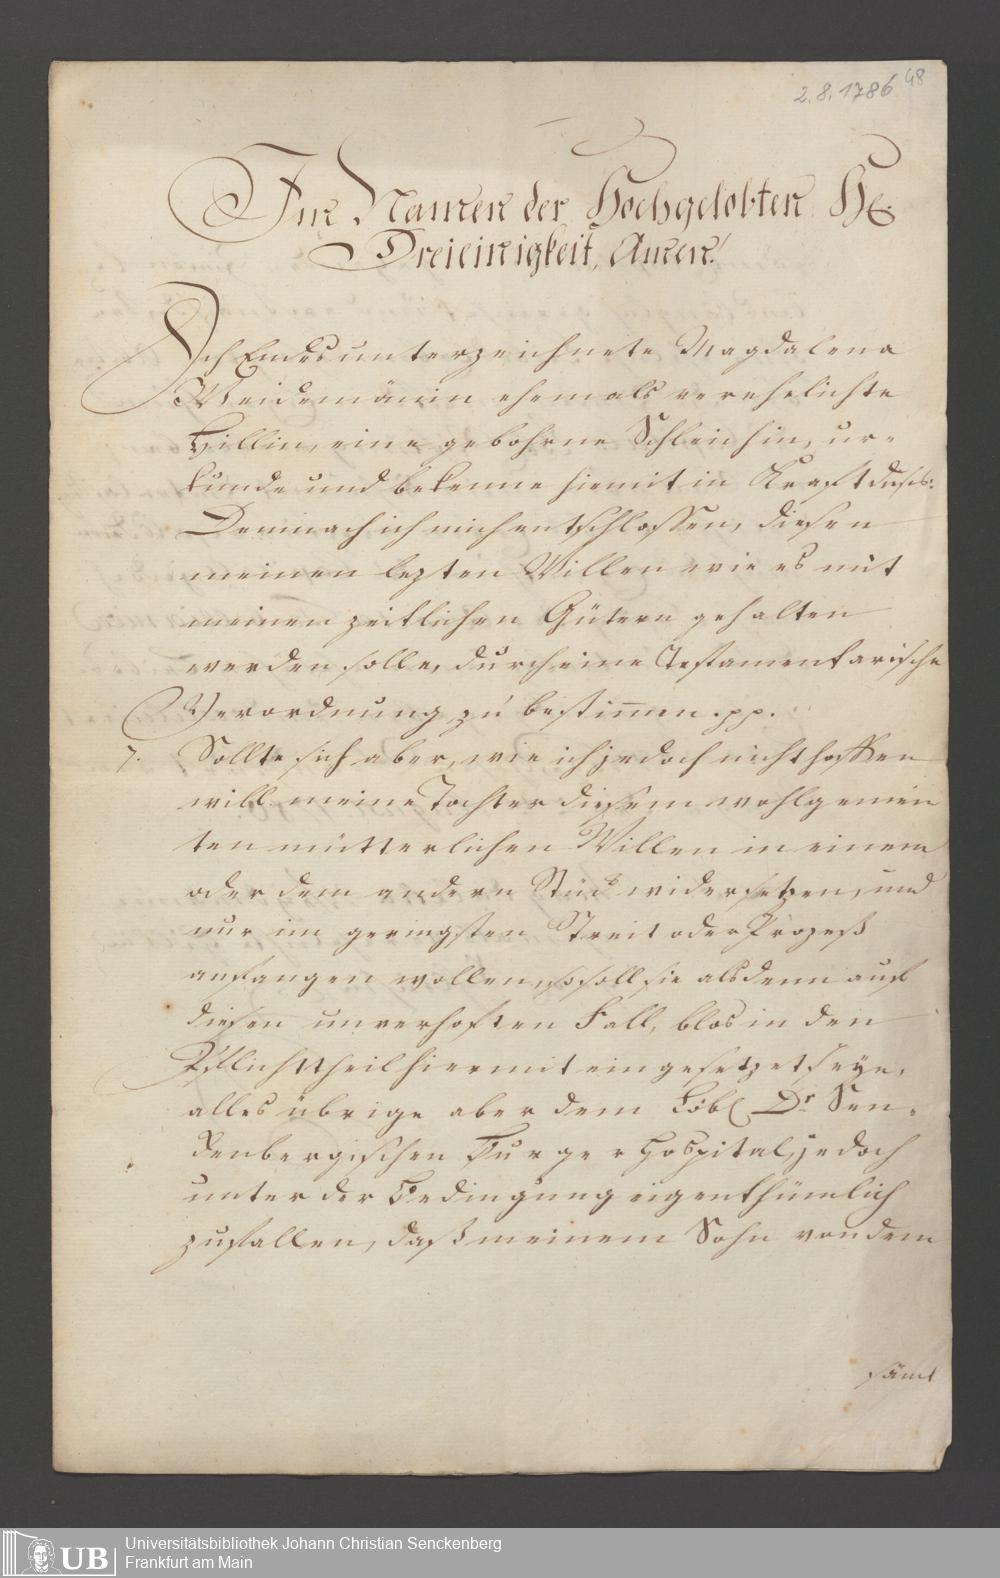 2.8.1786 48
Im Namen der Hochgelobten He.
Dreieinigkeit, Amen!
Ich Endesunterzeichnete Magdalena
Weidemännin ehemals verehelichte
Hillin, eine gebohrne Schleichin, ur-
kunde und bekenne hiemit in Kraft dieses:
Demnach ich mich entschlossen, diesen
meinen lezten Willen wie es mit
meinen zeitlichen Gütern gehalten
werden solle, durch eine Testamentarische
Verordnung zu bestim̅en. pp.
7. Sollte sich aber, wie ich jedoch nicht hoffen
will meine Tochter diesem wohlgemein
ten mütterlichen Willen in einem
oder dem andern Stück widersetzen, und
nur im geringsten Streit oder Prozeß
anfangen wollen, so soll sie alsdenn auf
diesen unverhoften Fall, blos in den
Pflichttheil hiermit eingesetzet seye,
alles übrige aber dem Löbl. Dr. Sen-
kenbergischen Burger Hospital, jedoch
unter der Bedingung eigenthümlich
zufallen, daß meinem Sohn von dem
sämt
UB
Universitätsbibliothek Johann Christian Senckenberg
Frankfurt am Main